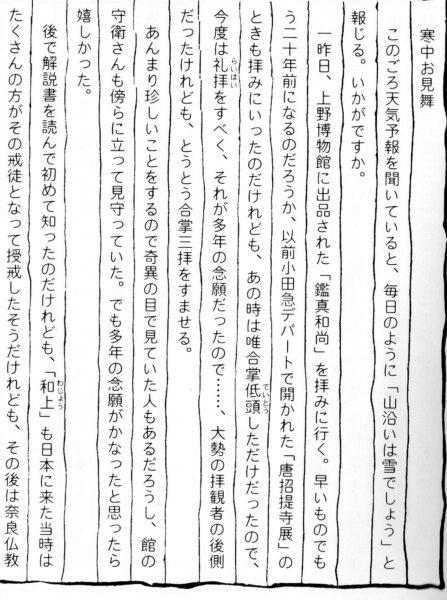 寒中お見舞
このごろ天気予報を聞いていると、毎日のように「山沿いは雪でしょう」と
報じる。いかがですか。
一昨日、上野博物館に出品された「鑑真和尚」を拝みに行く。早いものでも
う二十年前になるのだろうか、以前小田急デパートで開かれた「唐招提寺展」の
ときも拝みにいったのだけれども、あの時は唯合掌低頭しただけだったので、
今度は礼拝をすべく、それが多年の念願だったので……、大勢の拝観者の後側
だったけれども、とうとう合掌三拝をすませる。
あんまり珍しいことをするので奇異の目で見ていた人もあるだろうし、館の
守衛さんも傍らに立って見守っていた。でも多年の念願がかなったと思ったら
嬉しかった。
後で解説書を読んで初めて知ったのだけれども、「和上」も日本に来た当時は
たくさんの方がその戒徒となって授戒したそうだけれども、その後は奈良仏教